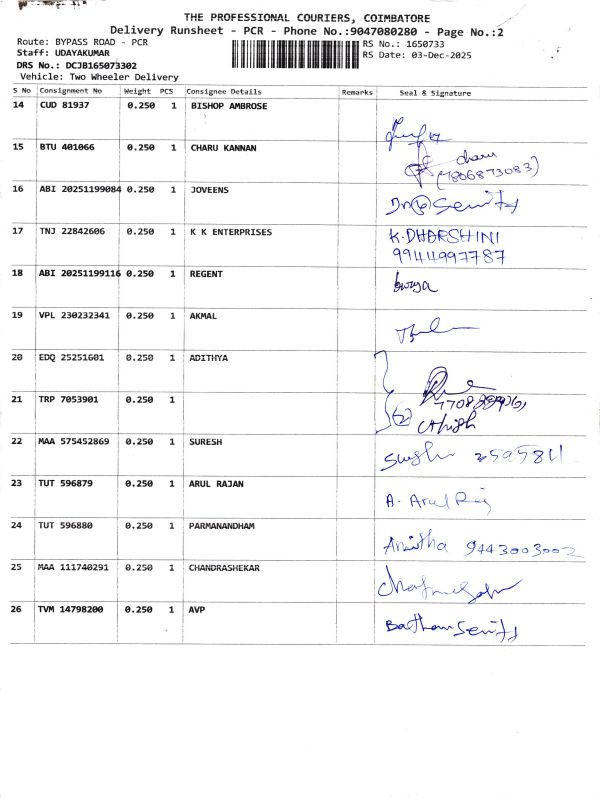 THE PROFESSIONAL COURIERS, COIMBATORE
Delivery Runsheet - PCR - Phone No.:9047080280 - Page No.:2
Route: BYPASS ROAD - PCR
Staff: UDAYAKUMAR
DRS No.: DCJB165073302
Vehicle: Two Wheeler Delivery
RS No.: 1650733
RS Date: 03-Dec-2025
S No Consignment No Weight PCS Consignee Details Remarks Seal & Signature
14 CUD 81937 0.250 1 BISHOP AMBROSE
15 BTU 401066 0.250 1 CHARU KANNAN
charu
(7806873083)
16 ABI 20251199084 0.250 1 JOVEENS
17 TNJ 22842606 0.250 1 K K ENTERPRISES K.DHARSHINI
9944997787
18 ABI 20251199116 0.250 1 REGENT
19 VPL 230232341 0.250 1 AKMAL
20 EDQ 25251601 0.250 1 ADITHYA
21 TRP 7053901 0.250 1
22 MAA 575452869 0.250 1 SURESH
23 TUT 596879 0.250 1 ARUL RAJAN A. Arul Raj
24 TUT 596880 0.250 1 PARMANANDHAM
Anitha 9443003002
25 MAA 111740291 0.250 1 CHANDRASHEKAR
26 TVM 14798200 0.250 1 AVP